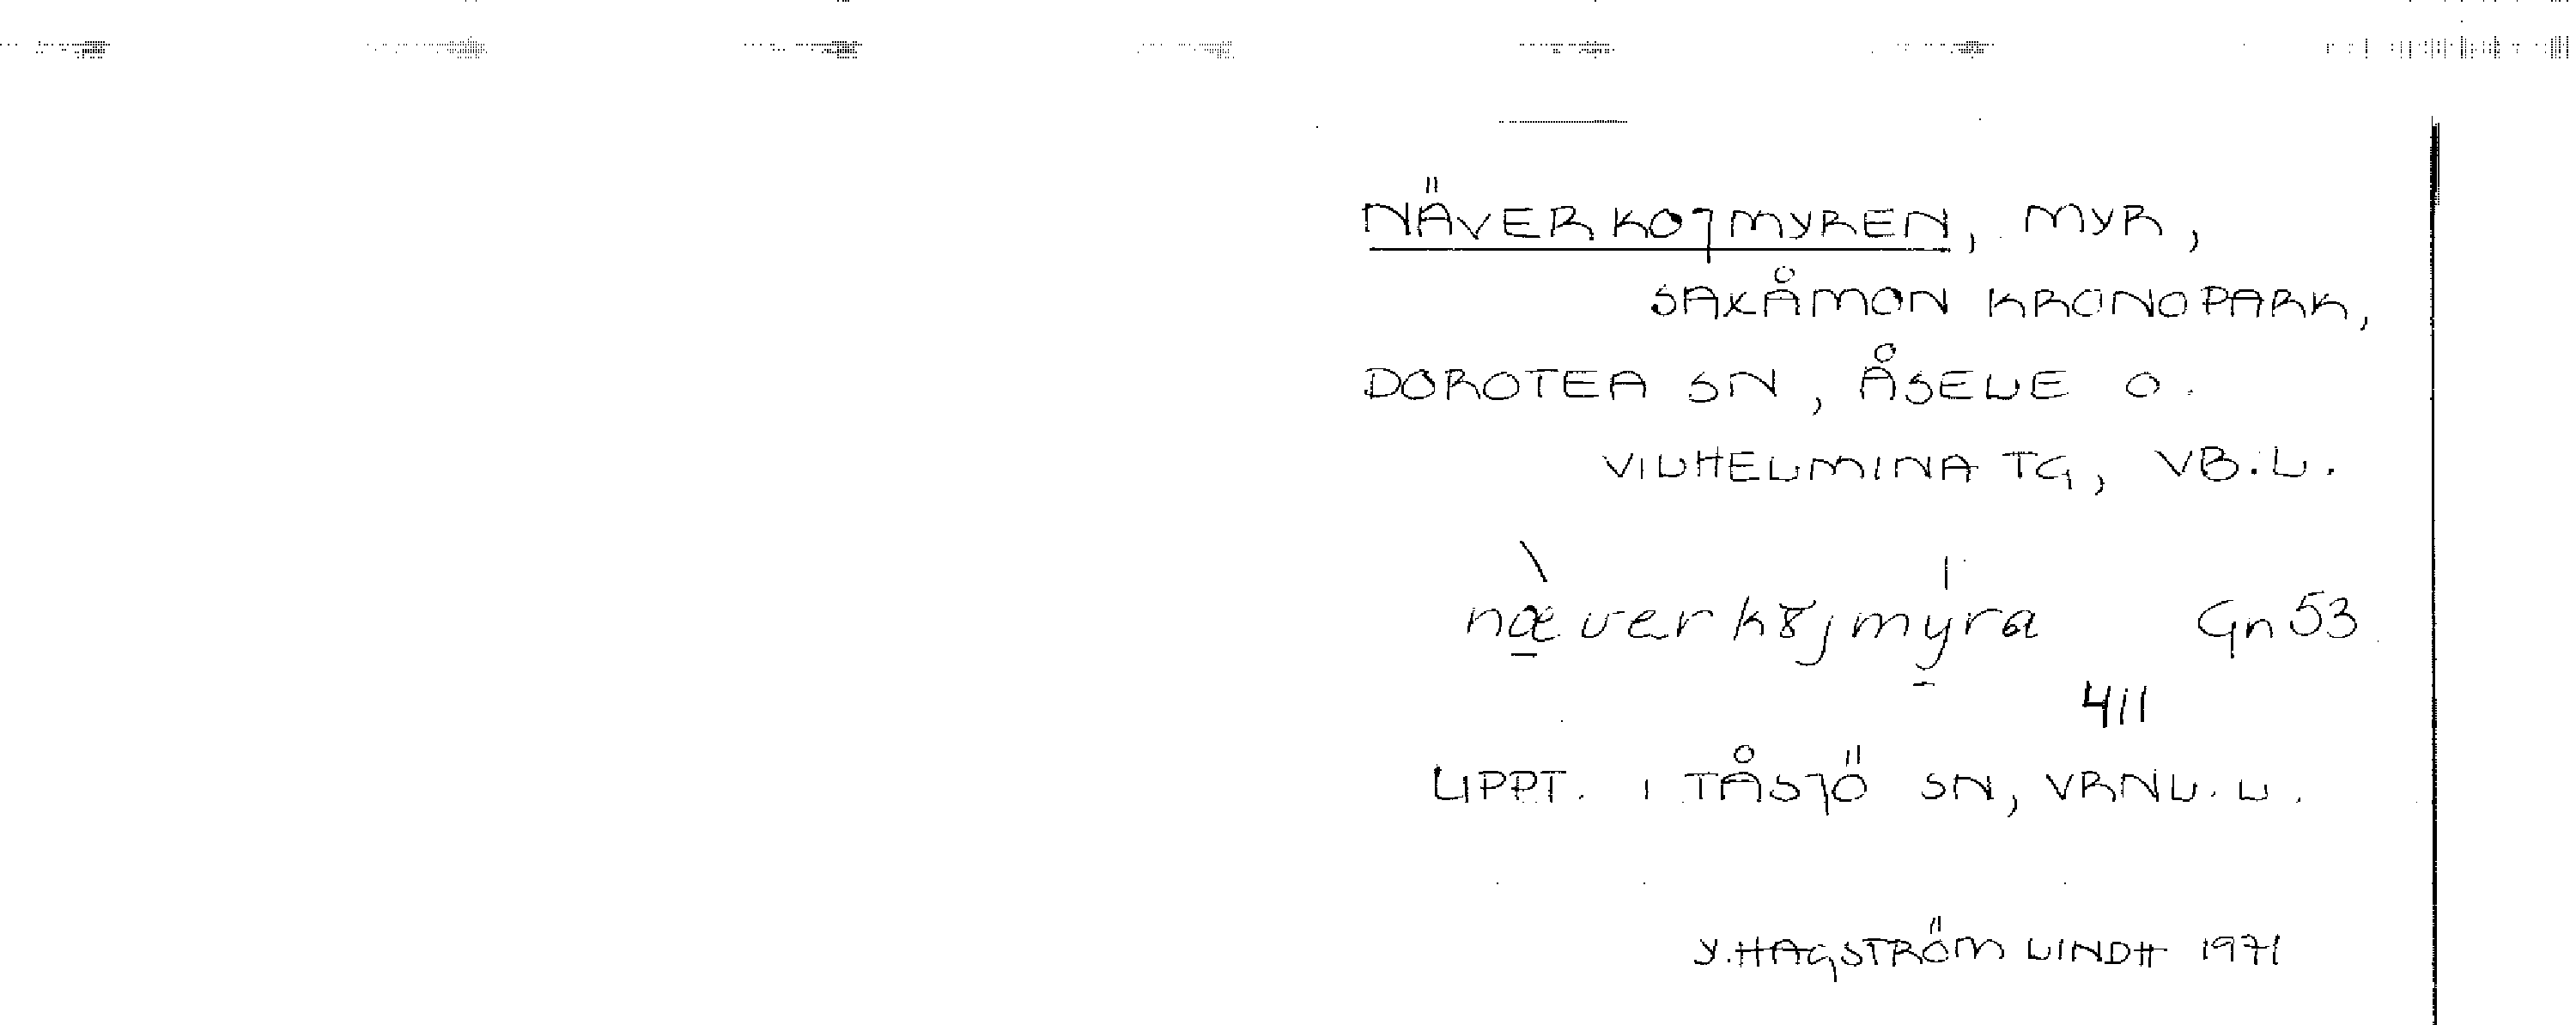 NÄVERKOJMYREN, MYR,
SAXÅMON KRONOPARK,
DOROTEA SN, ÅSELE O.
VILHELMINA TG, VB.L.
næverkȣjmyra Gn 53
411
UPPT. I TÅSJÖ SN, VRNL.L.
Y. HAGSTRÖM LINDH 1971